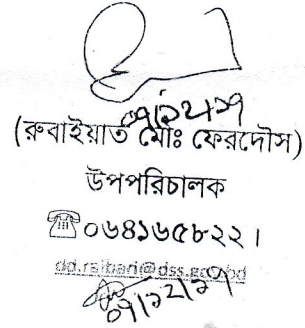 (রুবাইয়াত মোঃ ফেরদৌস)
উপপরিচালক
☎০৬৪১৬৫৮২২।
dd.rajbari@dss.gov.bd